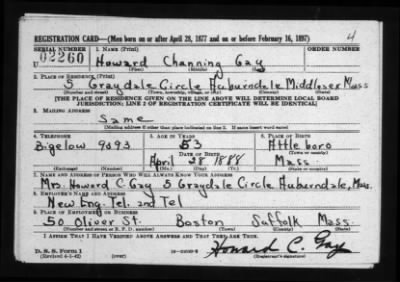 REGISTRATION CARD—(Men born on or after April 28, 1877 and on or before February 16, 1897)
4
SERIAL NUMBER 1. NAME (Print) ORDER NUMBER
U 02260 Howard Channing Gay
(First) (Middle) (Last)
2. PLACE OF RESIDENCE (Print)
5 Graydale Circle Auburndale Middlesex Mass
(Number and street) (Town, township, village, or city) (County) (State)
[THE PLACE OF RESIDENCE GIVEN ON THE LINE ABOVE WILL DETERMINE LOCAL BOARD
JURISDICTION; LINE 2 OF REGISTRATION CERTIFICATE WILL BE IDENTICAL]
3. MAILING ADDRESS
Same
[Mailing address if other than place indicated on line 2. If same insert word same]
4. TELEPHONE 5. AGE IN YEARS 6. PLACE OF BIRTH
Bigelow 9093 53 Attleboro
DATE OF BIRTH (Town or county)
April 28 1888 Mass.
(Exchange) (Number) (Mo.) (Day) (Yr.) (State or country)
7. NAME AND ADDRESS OF PERSON WHO WILL ALWAYS KNOW YOUR ADDRESS
Mrs. Howard C. Gay 5 Graydale Circle Auburndale, Mass.
8. EMPLOYER'S NAME AND ADDRESS
New Eng. Tel. and Tel
9. PLACE OF EMPLOYMENT OR BUSINESS
50 Oliver St. Boston Suffolk Mass.
(Number and street or R. F. D. number) (Town) (County) (State)
I AFFIRM THAT I HAVE VERIFIED ABOVE ANSWERS AND THAT THEY ARE TRUE.
D. S. S. Form 1
(Revised 4-1-42) (over)
Howard C. Gay
(Registrant's signature)